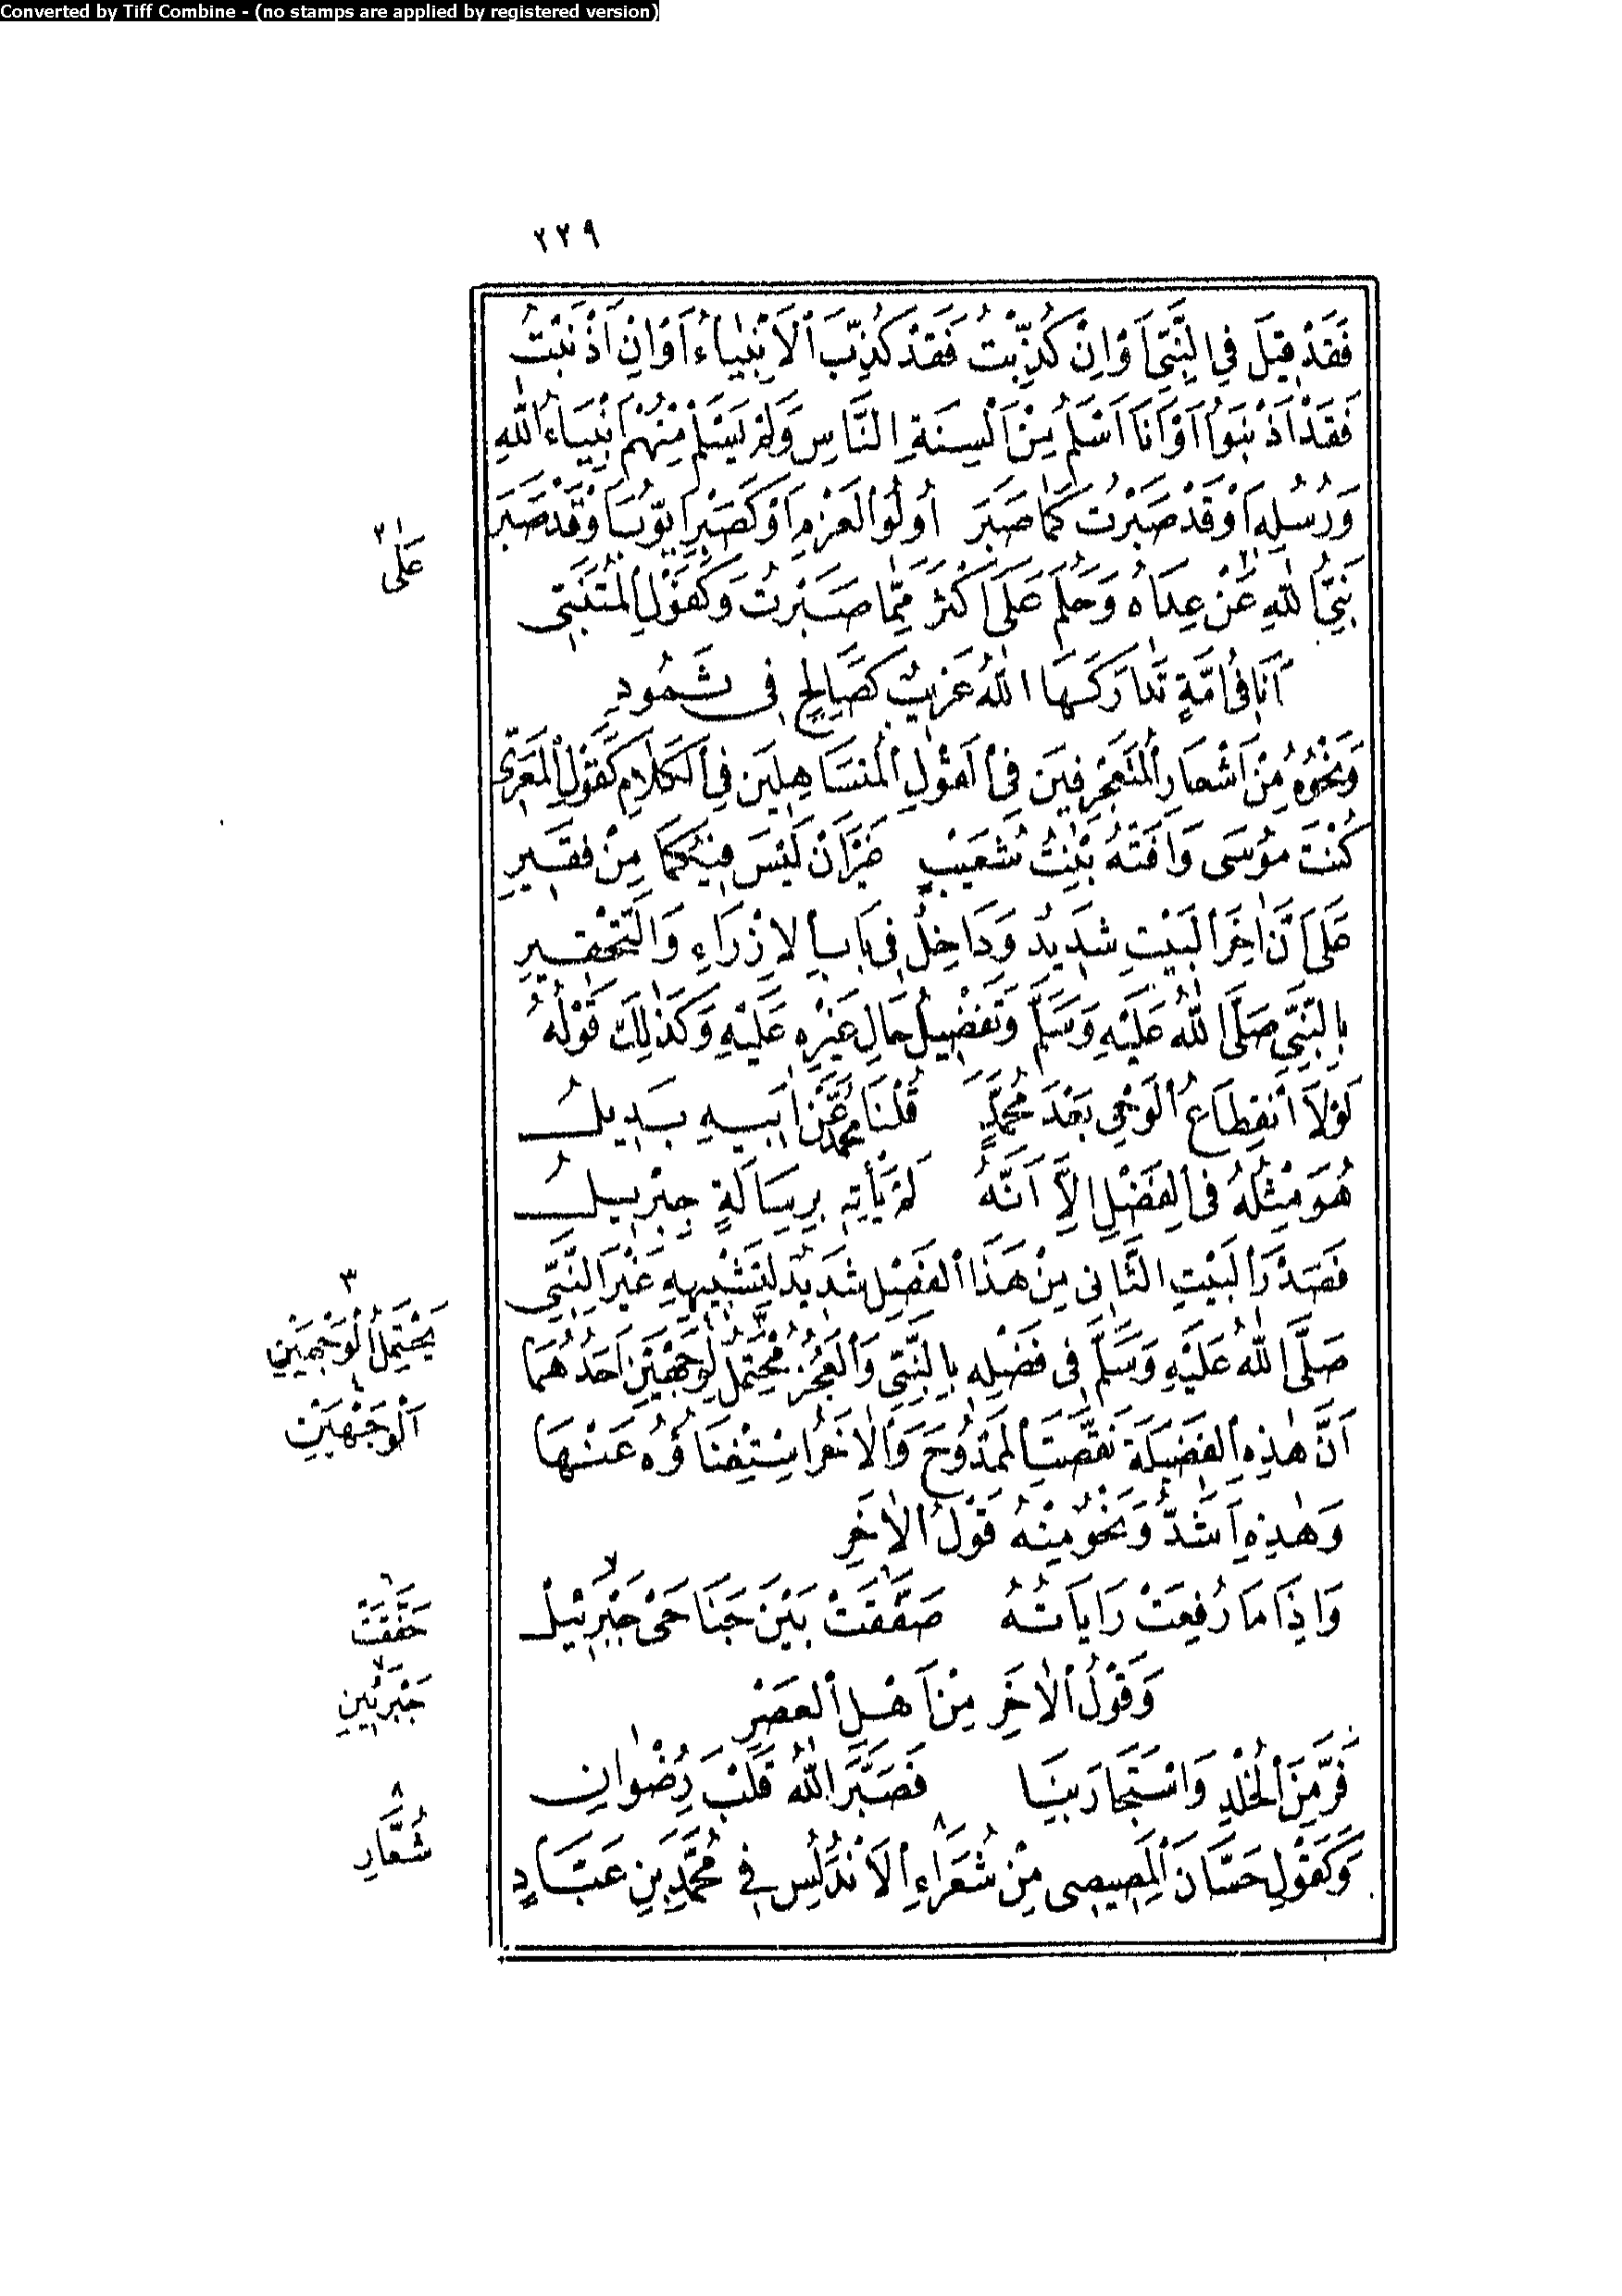 Converted by Tiff Combine - (no stamps are applied by registered version)
٢٣٩
فَقَدْ قِيلَ فِي النَّبِيِّ اَوْ اِنْ كُذِّبْتُ فَقَدْ كُذِّبَ الْاَنْبِيَاءُ اَوْ اِنْ اَذْنَبْتُ
فَقَدْ اَذْنَبُوا اَوْ اَنَا اَسْلَمُ مِنْ اَلْسِنَةِ النَّاسِ وَلَمْ يَسْلَمْ مِنْهُمْ اَنْبِيَاءُ اللهِ
وَرُسُلُهُ اَوْ قَدْ صَبَرْتُ كَمَا صَبَرَ اُولُوا الْعَزْمِ اَوْ كَصَبْرِ اَيُّوبَ اَوْ قَدْ صَبَرَ
نَبِيُّ اللهِ عَنْ عِدَاهُ وَحَلُمَ عَلَى اَكْثَرَ مِمَّا صَبَرْتُ وَكَقَوْلِ الْمُتَنَبِّى
اَنَا فِى اُمَّةٍ تَدَارَكَهَا اللهُ غَرِيبٌ كَصَالِحٍ فِى ثَمُودِ
وَنَحْوُهُ مِنْ اَشْعَارِ الْمُتَعَجْرِفِينَ فِى الْقَوْلِ الْمُتَسَاهِلِينَ فِى الْكَلَامِ كَقَوْلِ الْمَعَرِّى
كُنْتَ مُوسَى وَافَتْهُ بِنْتُ شُعَيْبٍ غَيْرَ اَنْ لَيْسَ فِيكُمَا مِنْ فَقِيرِ
عَلَى اَنَّ اٰخِرَ الْبَيْتِ شَدِيدٌ وَدَاخِلٌ فِى بَابِ الْاِزْرَاءِ وَالتَّحْقِيرِ
بِالنَّبِيِّ صَلَّى اللهُ عَلَيْهِ وَسَلَّمَ وَتَفْضِيلُ حَالِ غَيْرِهِ عَلَيْهِ وَكَذٰلِكَ قَوْلُهُ
لَوْلَا انْقِطَاعُ الْوَحْىِ بَعْدَ مُحَمَّدٍ قُلْنَا مُحَمَّدٌ عَنْ اَبِيهِ بَدِيلُ
هُوَ مِثْلُهُ فِى الْفَضْلِ اِلَّا اَنَّهُ لَمْ يَأْتِهِ بِرِسَالَةٍ جِبْرِيلُ
فَصَدْرُ الْبَيْتِ الثَّانِى مِنْ هَذَا الْفَصْلِ شَدِيدٌ لِتَشْبِيهِهِ غَيْرَ النَّبِيِّ
صَلَّى اللهُ عَلَيْهِ وَسَلَّمَ فِى فَضْلِهِ بِالنَّبِيِّ وَالْعَجُزُ مُحْتَمِلٌ لِوَجْهَيْنِ اَحَدُهُمَا
اَنَّ هٰذِهِ الْفَضِيلَةَ نَقَّصَتِ الْمَمْدُوحَ وَالْاٰخَرُ اسْتِغْنَاؤُهُ عَنْهَا
وَهٰذِهِ اَشَدُّ وَنَحْوٌ مِنْهُ قَوْلُ الْاٰخَرِ
وَاِذَا مَا رُفِعَتْ رَايَاتُهُ صَفَّقَتْ بَيْنَ جَنَاحَىْ جَبْرَئِيلْ
وَقَوْلُ الْاٰخَرِ مِنْ اَهْلِ الْعَصْرِ
فَرَّ مِنَ الْخُلْدِ وَاسْتَجَارَ بِنَا فَصَبَّرَ اللهُ قَلْبَ رِضْوَانِ
وَكَقَوْلِ حَسَّانَ الْمِصِيصِى مِنْ شُعَرَاءِ الْاَنْدَلُسِ فِى مُحَمَّدِ بْنِ عَبَّادٍ
٢
عَلٰى
٣
يَحْتَمِلُ الْوَجْهَيْنِ
٤
اَلْوَجْهَيْنِ
٦
خَفَقَتْ
٧
جَبْرَئِينِ
٨
شُعَّارِ